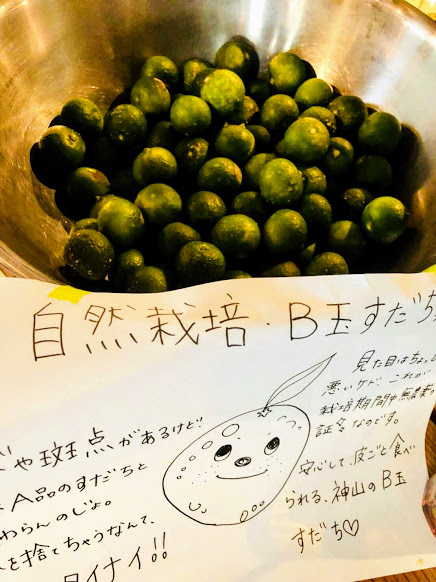 自然栽培・B玉すだち
見た目はちょっと
悪いケド、これが
栽培期間中無農薬の
証なのです。
や斑点があるけど!
A品のすだちと
わらんのじょ。
を捨てちゃうなんて、
タイナイ!!
安心して、皮ごと食べ
られる、神山のB玉
すだち♡